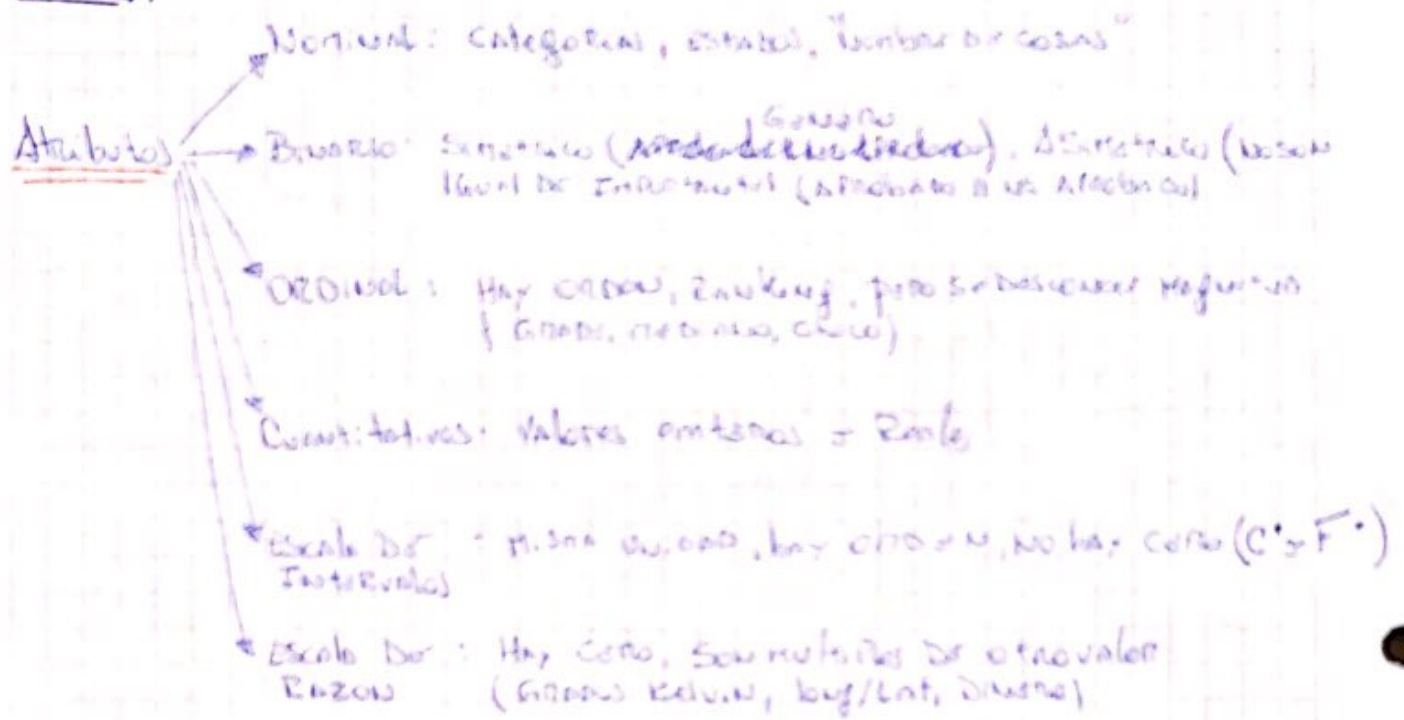 Nominal: Categorias, estados, "nombre de cosas"
Atributos
Genero
Binario: Simetrico ( ), Asimetrico (no son
igual de importantes (aprobado o no aprobado)
Ordinal: Hay orden, Ranking, pero se desconoce magnitud
(Grande, mediano, chico)
Cuantitativos: Valores enteros o Reales
Escala De : misma unidad, hay orden, no hay cero (C° y F°)
Intervalos
Escala De : Hay cero, son multiplos de otro valor
Razon (Grados Kelvin, long/Lat, Dinero)